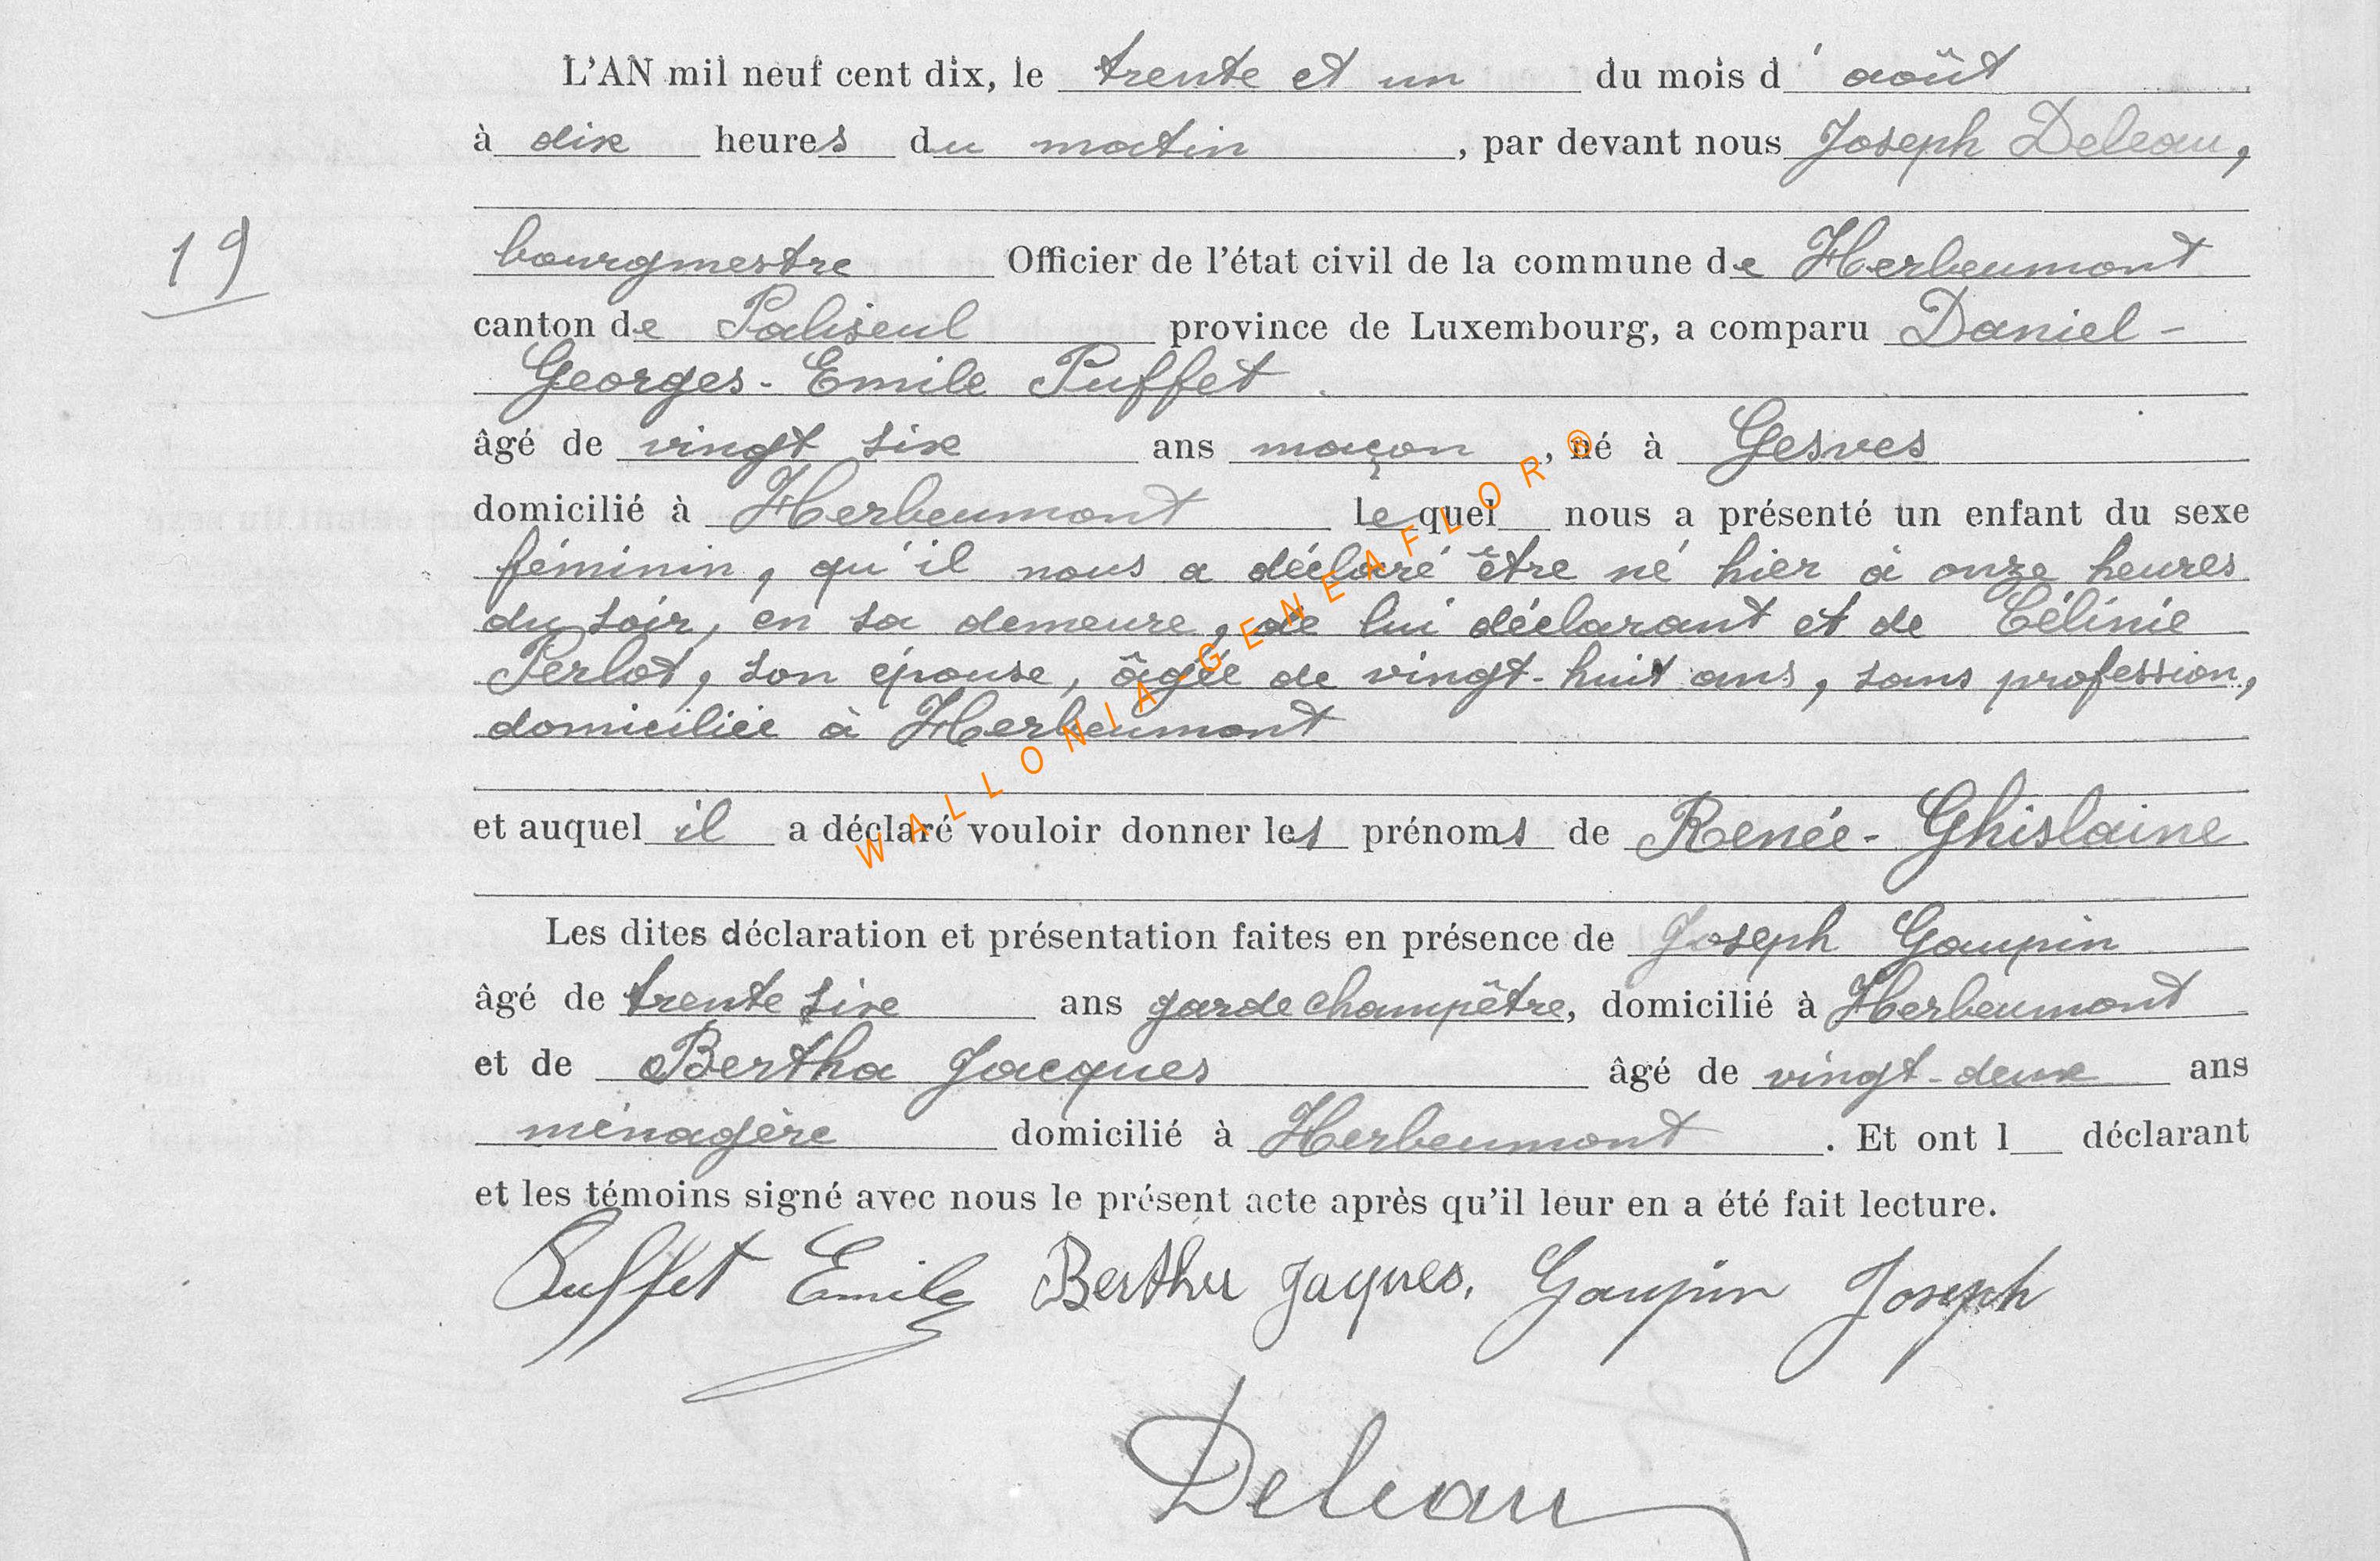 L'AN mil neuf cent dix, le trente et un du mois d' août
à dix heures du matin, par devant nous Joseph Deleau,
19
bourgmestre Officier de l'état civil de la commune de Herbeumont
canton de Paliseul province de Luxembourg, a comparu Daniel-
Georges-Emile Puffet
âgé de vingt six ans maçon, né à Gesves
domicilié à Herbeumont lequel nous a présenté un enfant du sexe
féminin, qu'il nous a déclaré être né hier à onze heures
du soir, en sa demeure, de lui déclarant et de Célinie
Perlot, son épouse, âgée de vingt-huit ans, sans profession,
domiciliée à Herbeumont
WALLONIA-GENEAFLOR®
et auquel il a déclaré vouloir donner les prénoms de Renée-Ghislaine
Les dites déclaration et présentation faites en présence de Joseph Gaupin
âgé de trente six ans garde champêtre, domicilié à Herbeumont
et de Bertha Jacques âgé de vingt-deux ans
ménagère domicilié à Herbeumont. Et ont l déclarant
et les témoins signé avec nous le présent acte après qu'il leur en a été fait lecture.
Puffet Emile Bertha Jaques. Gaupin Joseph
Deleau